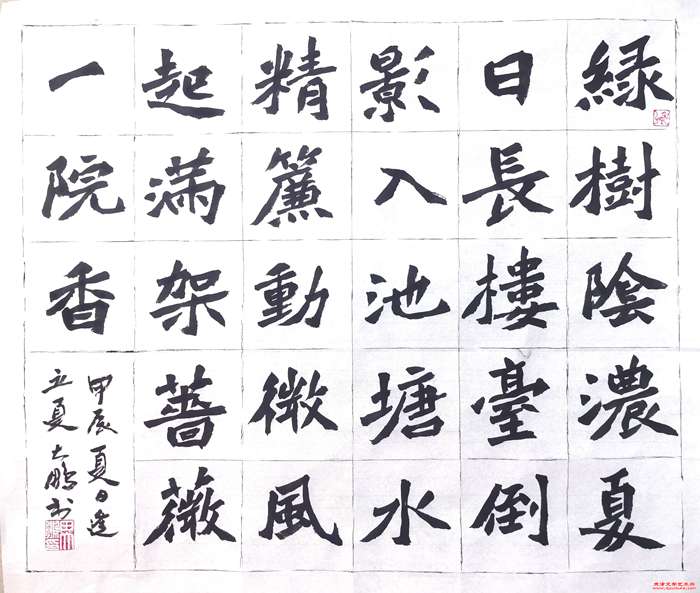 綠樹陰濃夏
日長樓臺倒
影入池塘水
精簾動微風
起滿架薔薇
一院香
甲辰夏日逢
立夏大鵬书